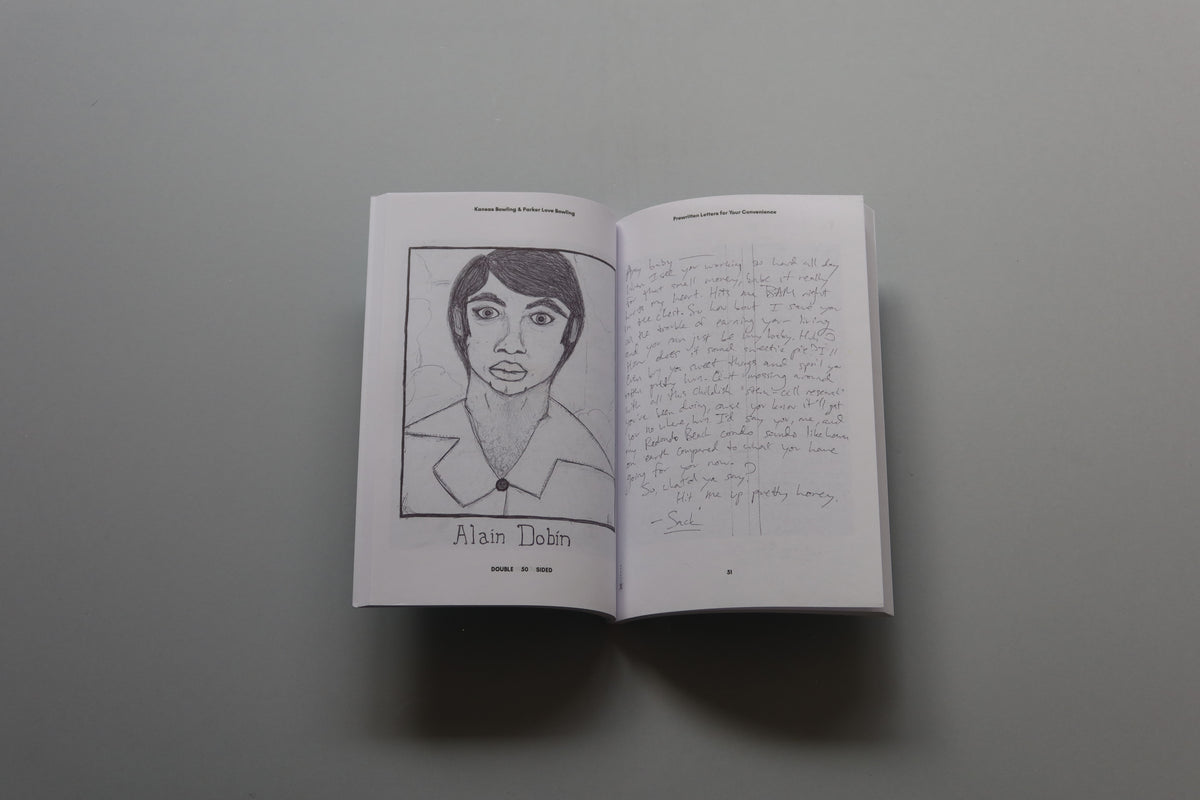 Kansas Bowling & Parker Love Bowling
Alain Dobin
DOUBLE 50 SIDED
Prewritten Letters for Your Convenience
baby
I see you working so hard all day
for that small money, babe it really
my heart. Hits me BAM right
in the chest. So how bout I save you
the trouble of earning your living
and you can just be my baby. Huh?
How does it sound sweetie pie? I'll
even buy you sweet things and spoil ya
pretty hun. Quit messing around
with all this childish "stem-cell research"
you've been doing, cause you know it'll get
you no where, hun. I'd say you, me, and
my Redondo Beach condo sounds like heaven
on earth compared to what you have
going for you now.
So, what'd ya say?
Hit me up pretty honey.
51